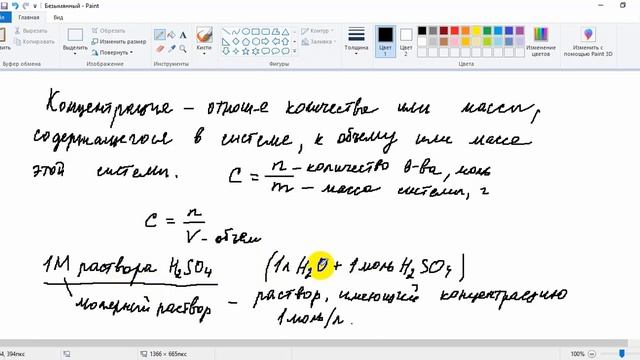 Безымянный - Paint
Главная
Вид
Вырезать
Копировать
Обрезать
Изменить размер
Повернуть
Кисти
Контур
Заливка
Толщина
Цвет 1
Цвет 2
Изменение цветов
Изменить с помощью Paint 3D
Буфер обмена
Изображение
Инструменты
Фигуры
Цвета
Концентрация – отнош-е количества или массы,
содержащегося в системе, к объему или массе
этой системы. C = n/m – количество в-ва, моль
– масса системы, г
C = n/V – объем
1М раствора H₂SO₄ (1л H₂O + 1 моль H₂SO₄)
молярный раствор – раствор, имеющий концентрацию
1 моль/л.
394пкс
1366 × 665пкс
100%